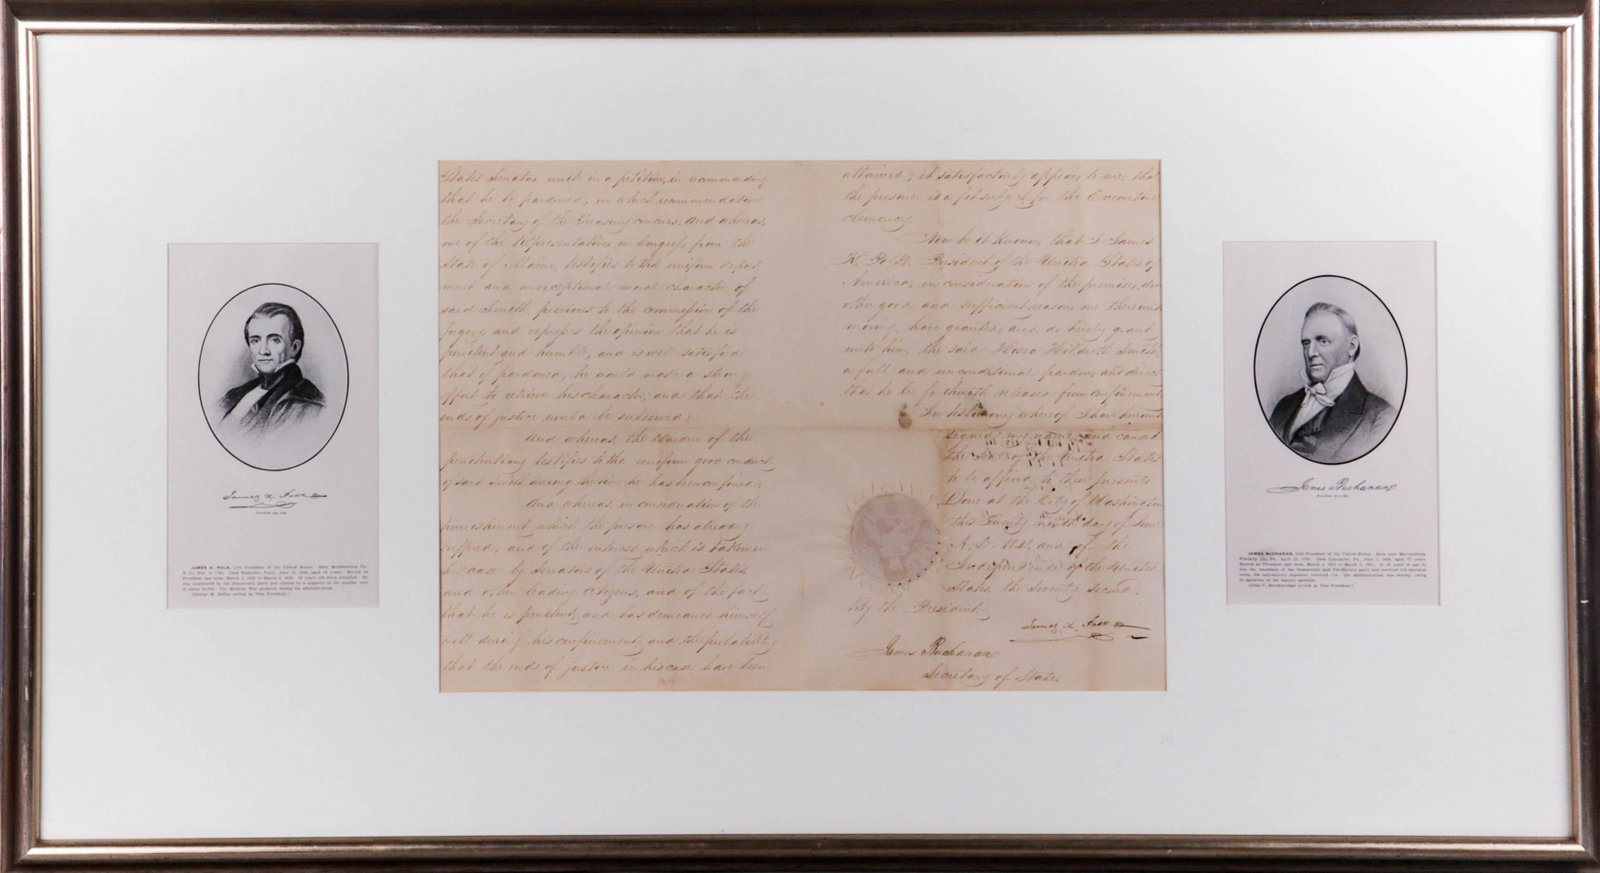 States Senators, unite in a petition, in recommending
that he be pardoned, in which recommendation
the Secretary of the Treasury concurs: And whereas,
one of the Representatives in Congress, from the
State of Maine, testifies to the uniform deport
ment and unexceptional moral character of
said Smith previous to the commission of the
forgery, and expresses the opinion that he is
penitent and humble, and is well satisfied
that if pardoned, he would make a strong
effort to retrieve his character, and that the
ends of justice would be subserved:
And whereas, the Warden of the
penitentiary testifies to the uniform good conduct
of said Smith during the time he has been confined:
And whereas, in consideration of the
punishment which the prisoner has already
suffered; and of the interest which is taken in
his case by Senators of the United States
and other leading citizens; and of the fact
that he is penitent, and has demeaned himself
well during his confinement, and the probability
that the ends of justice in his case have been
attained; it satisfactorily appears to me, that
the prisoner is a fit subject for the Executive
clemency
Now be it Known, that I, James
K. Polk, President of the United States of
America, in consideration of the premises, divers
other good and sufficient reasons me thereunto
moving, have granted, and do hereby grant
unto him, the said Hosea Hildreth Smith,
a full and unconditional pardon, and direct
that he be forthwith released from confinement.
In testimony whereof I have hereunto
signed my name, and caused
the Seal of the United States
to be affixed to these presents
Done at the City of Washington
this Twenty ninth day of June
A.D. 1848, and of the
Independence of the United
States, the seventy second.
By the President,
James K. Polk
James Buchanan
Secretary of State.
James K. Polk
JAMES K. POLK, 11th President of the United States.
James Buchanan
JAMES BUCHANAN, 15th President of the United States.